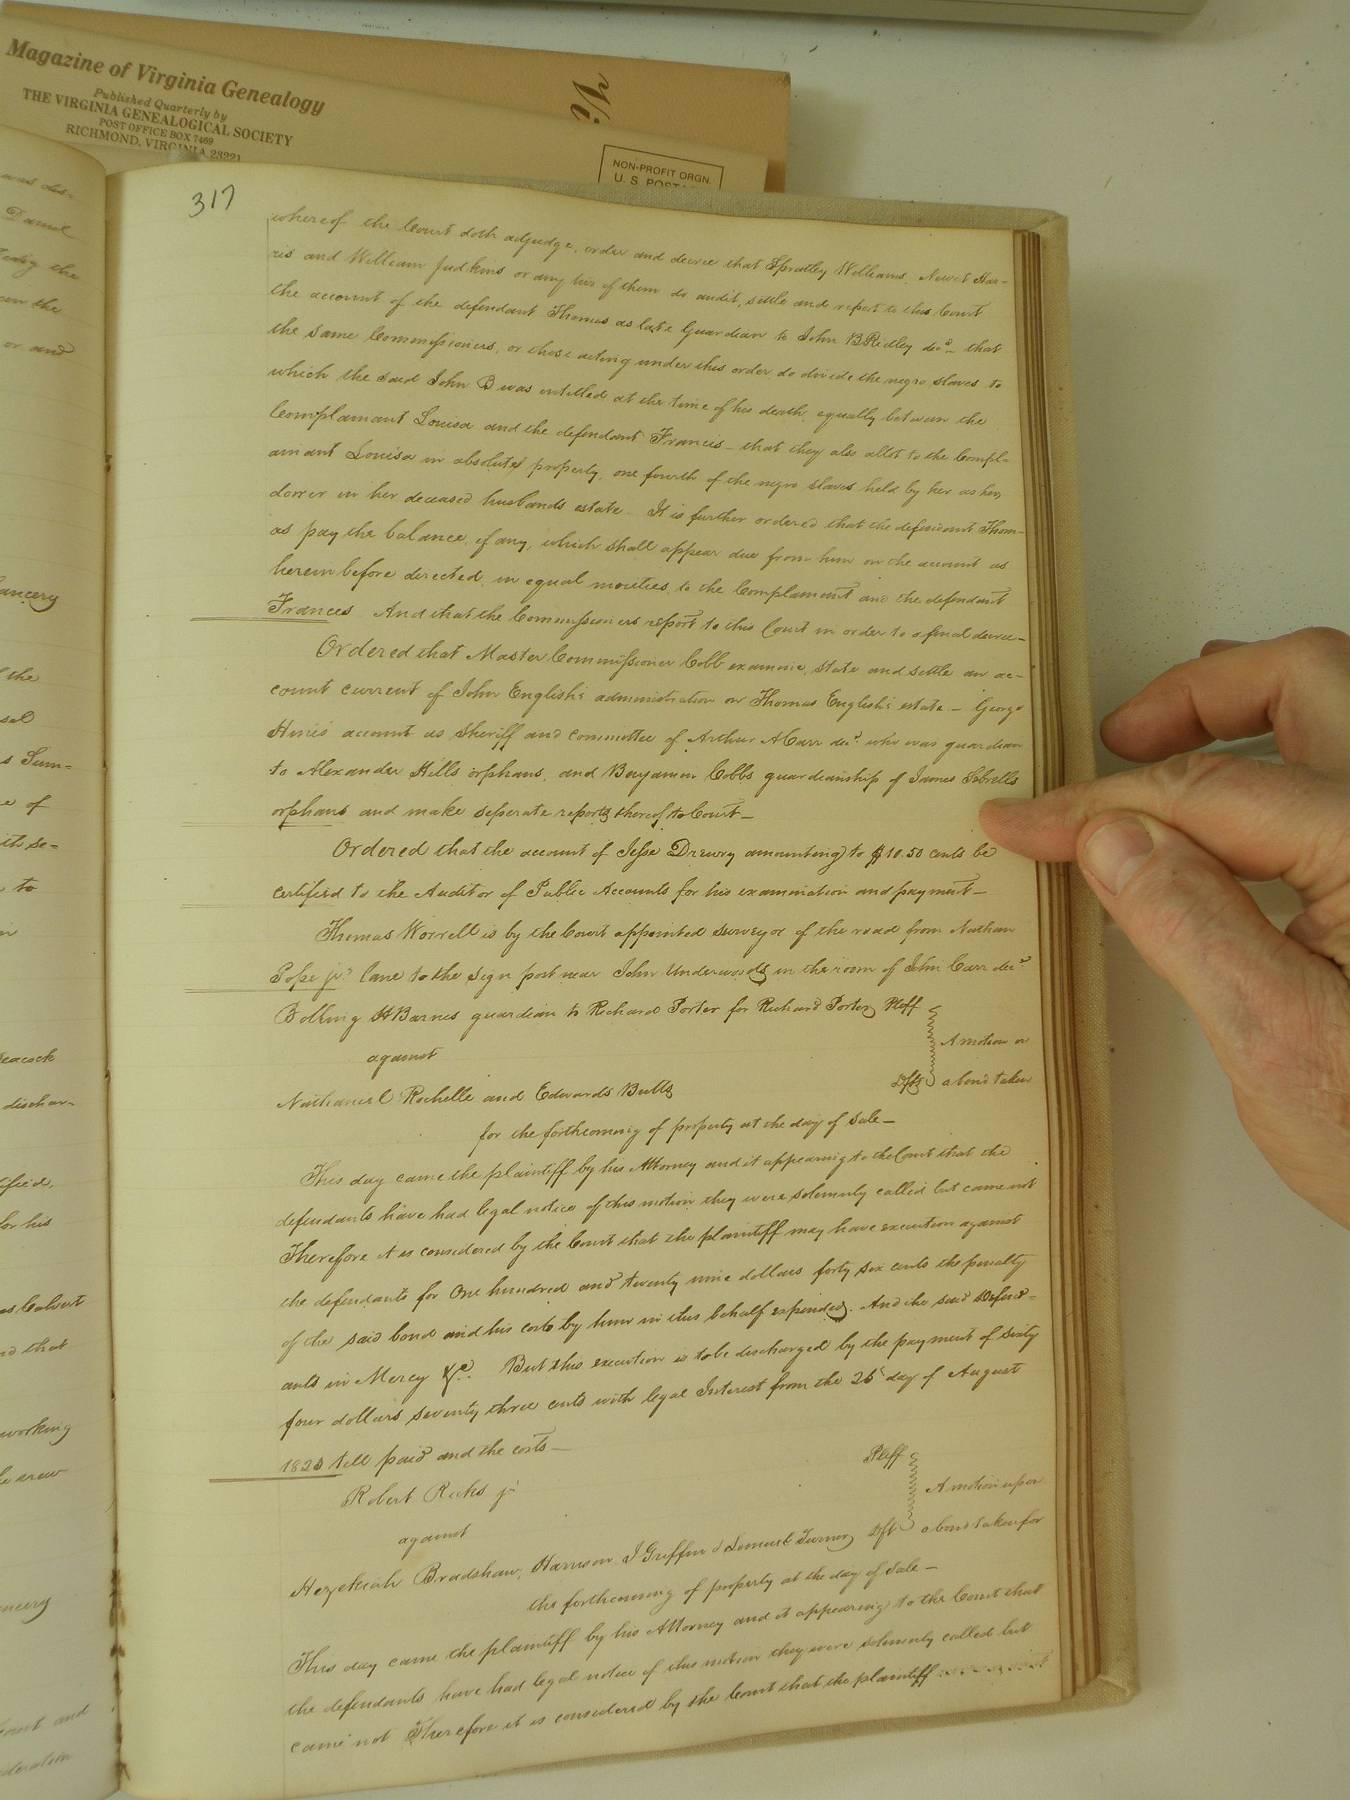 Magazine of Virginia Genealogy
Published Quarterly by
THE VIRGINIA GENEALOGICAL SOCIETY
POST OFFICE BOX 7469
RICHMOND, VIRGINIA 23221
Vi
NON-PROFIT ORGN.
U. S. POSTA
317
whereof the Court doth adjudge, order and decree that Spratley Williams, Newit Har-
ris and William Judkins or any two of them do audit, settle and report to this Court
the account of the defendant Thomas as late Guardian to John B Ridley decd that
the same Commissioners, or those acting under this order do divide the negro slaves to
which the said John B was entitled at the time of his death, equally between the
Complainant Louisa and the defendant Francis – that they also allot to the Compl-
ainant Louisa in absolute property, one fourth of the negro slaves held by her as her
dower in her deceased husbands estate It is further ordered that the defendant Thom-
as pay the balance, if any, which shall appear due from him on the account as
herein before directed, in equal moieties, to the Complainant and the defendant
Frances And that the Commissioners report to this Court in order to a final decree–
Ordered that Master Commissioner Cobb examine, state and settle an ac-
count current of John English's administration on Thomas English's estate – George
Hines account as Sheriff and committee of Arthur A Carr decd who was guardian
to Alexander Hills orphans, and Benjamin Cobbs guardianship of James Sebrells
orphans and make seperate reports thereof to Court–
Ordered that the account of Jesse Drewry amounting to $10.50 cents be
certified to the Auditor of Public Accounts for his examination and payment–
Thomas Worrell is by the Court appointed surveyor of the road from Nathan
Pope jrs lane to the sign post near John Underwoods in the room of John Carr decd
Bolling H Barnes guardian to Richard Porter for Richard Porter Pltff
A motion on
against
Nathaniel Rochelle and Edwards Butts Dfts a bond taken
for the forthcoming of property at the day of sale–
This day came the plaintiff by his Attorney and it appearing to the Court that the
defendants have had legal notice of this motion they were solemnly called but came not
Therefore it is considered by the Court that the plaintiff may have execution against
the defendants for One hundred and twenty nine dollars forty six cents the penalty
of the said bond and his costs by him in this behalf expended. And the said Defend=
ants in Mercy &c. But this execution is to be discharged by the payment of sixty
four dollars seventy three cents with legal Interest from the 26 day of August
1823 till paid and the costs–
Robert Ricks jr Pltff
A motion upon
against
Hezekiah Bradshaw, Harrison J Griffin & Lemuel Turner Dft a bond taken for
the forthcoming of property at the day of sale–
This day came the plaintiff by his Attorney and it appearing to the Court that
the defendants have had legal notice of this motion they were solemnly called but
came not Therefore it is considered by the Court that the plaintiff